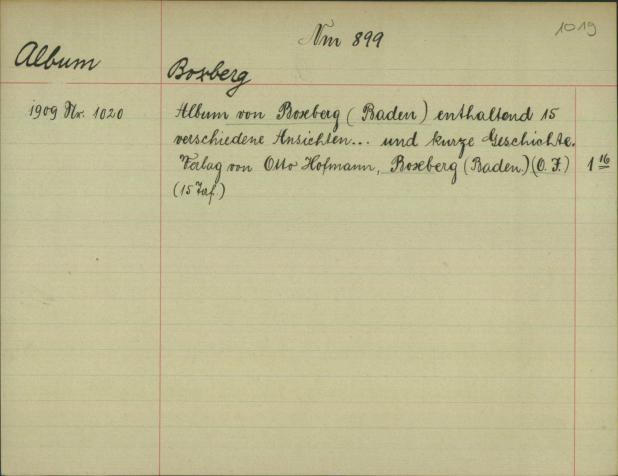 Nm 899
1019
Album
Boxberg
1909 Nr. 1020
Album von Boxberg (Baden) enthaltend 15
verschiedene Ansichten... und kurze Geschichte.
Verlag von Otto Hofmann, Boxberg (Baden.) (O. J.) 1 16
(15 Taf.)